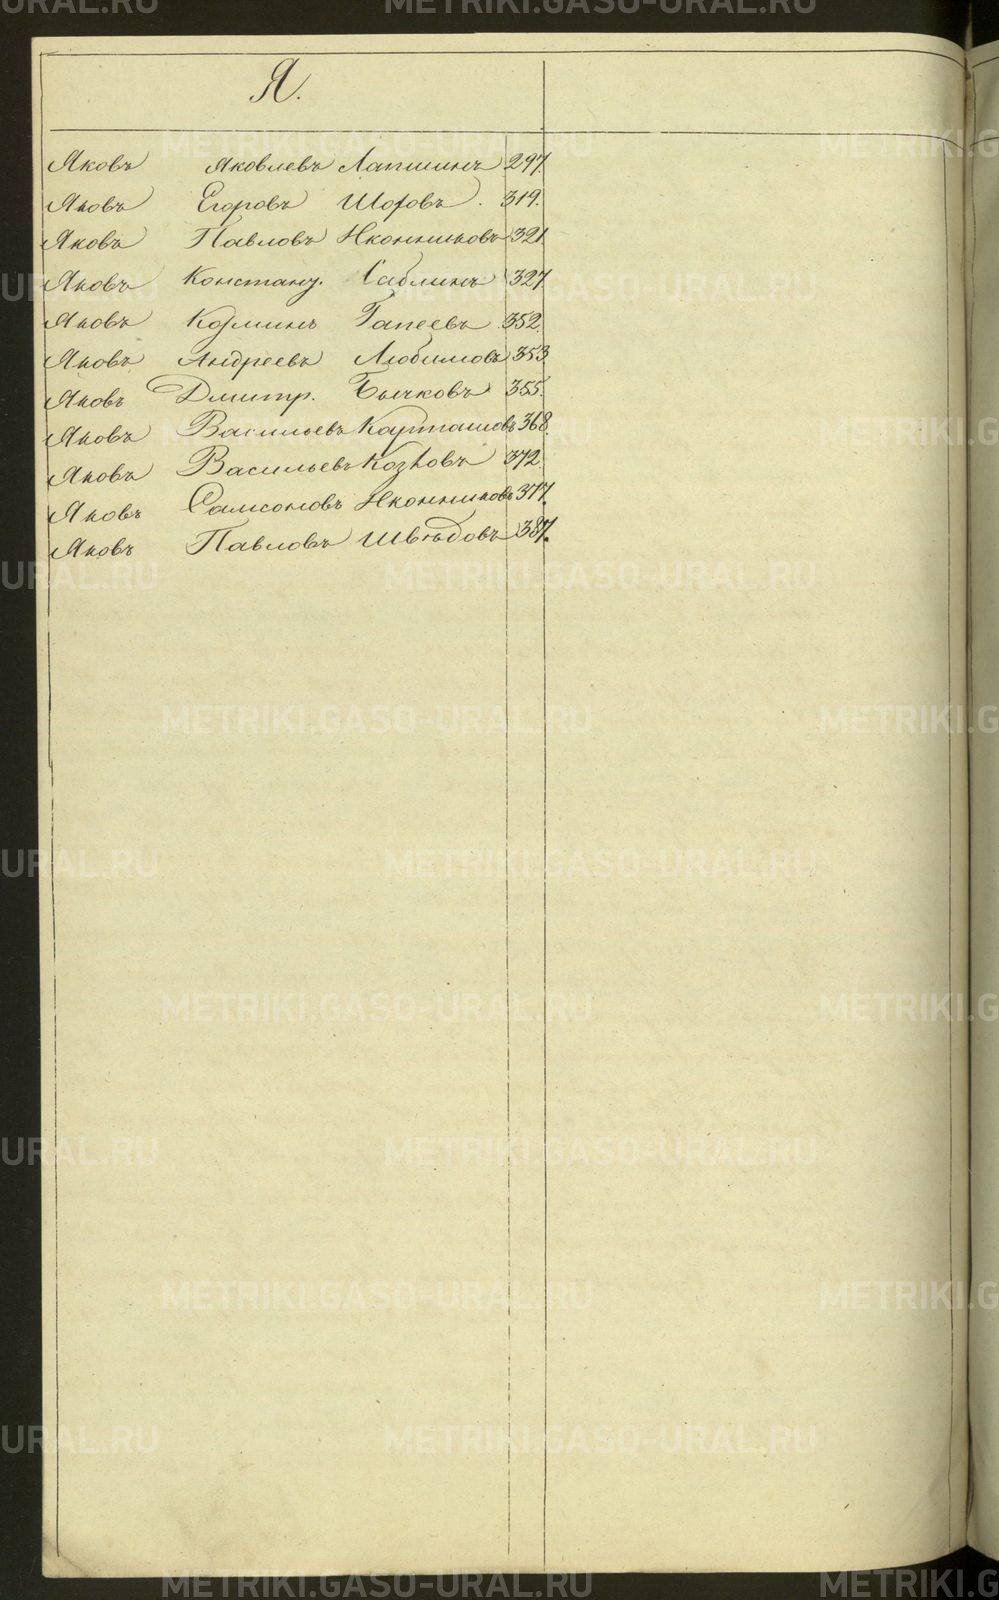 METRIKI.GASO-URAL.RU
Я.
Яковъ Яковлевъ Лапшинъ 297.
Яковъ Егоровъ Шоховъ. 319.
Яковъ Павловъ Иконниковъ 321.
Яковъ Констант. Саблинъ 327.
Яковъ Козминъ Гапеевъ 352.
Яковъ Андреевъ Любимовъ 353
Яковъ Дмитр. Бычковъ 355.
Яковъ Васильевъ Карташовъ 368.
Яковъ Васильевъ Козловъ 372.
Яковъ Самсоновъ Иконниковъ 377.
Яковъ Павловъ Шведовъ 387.